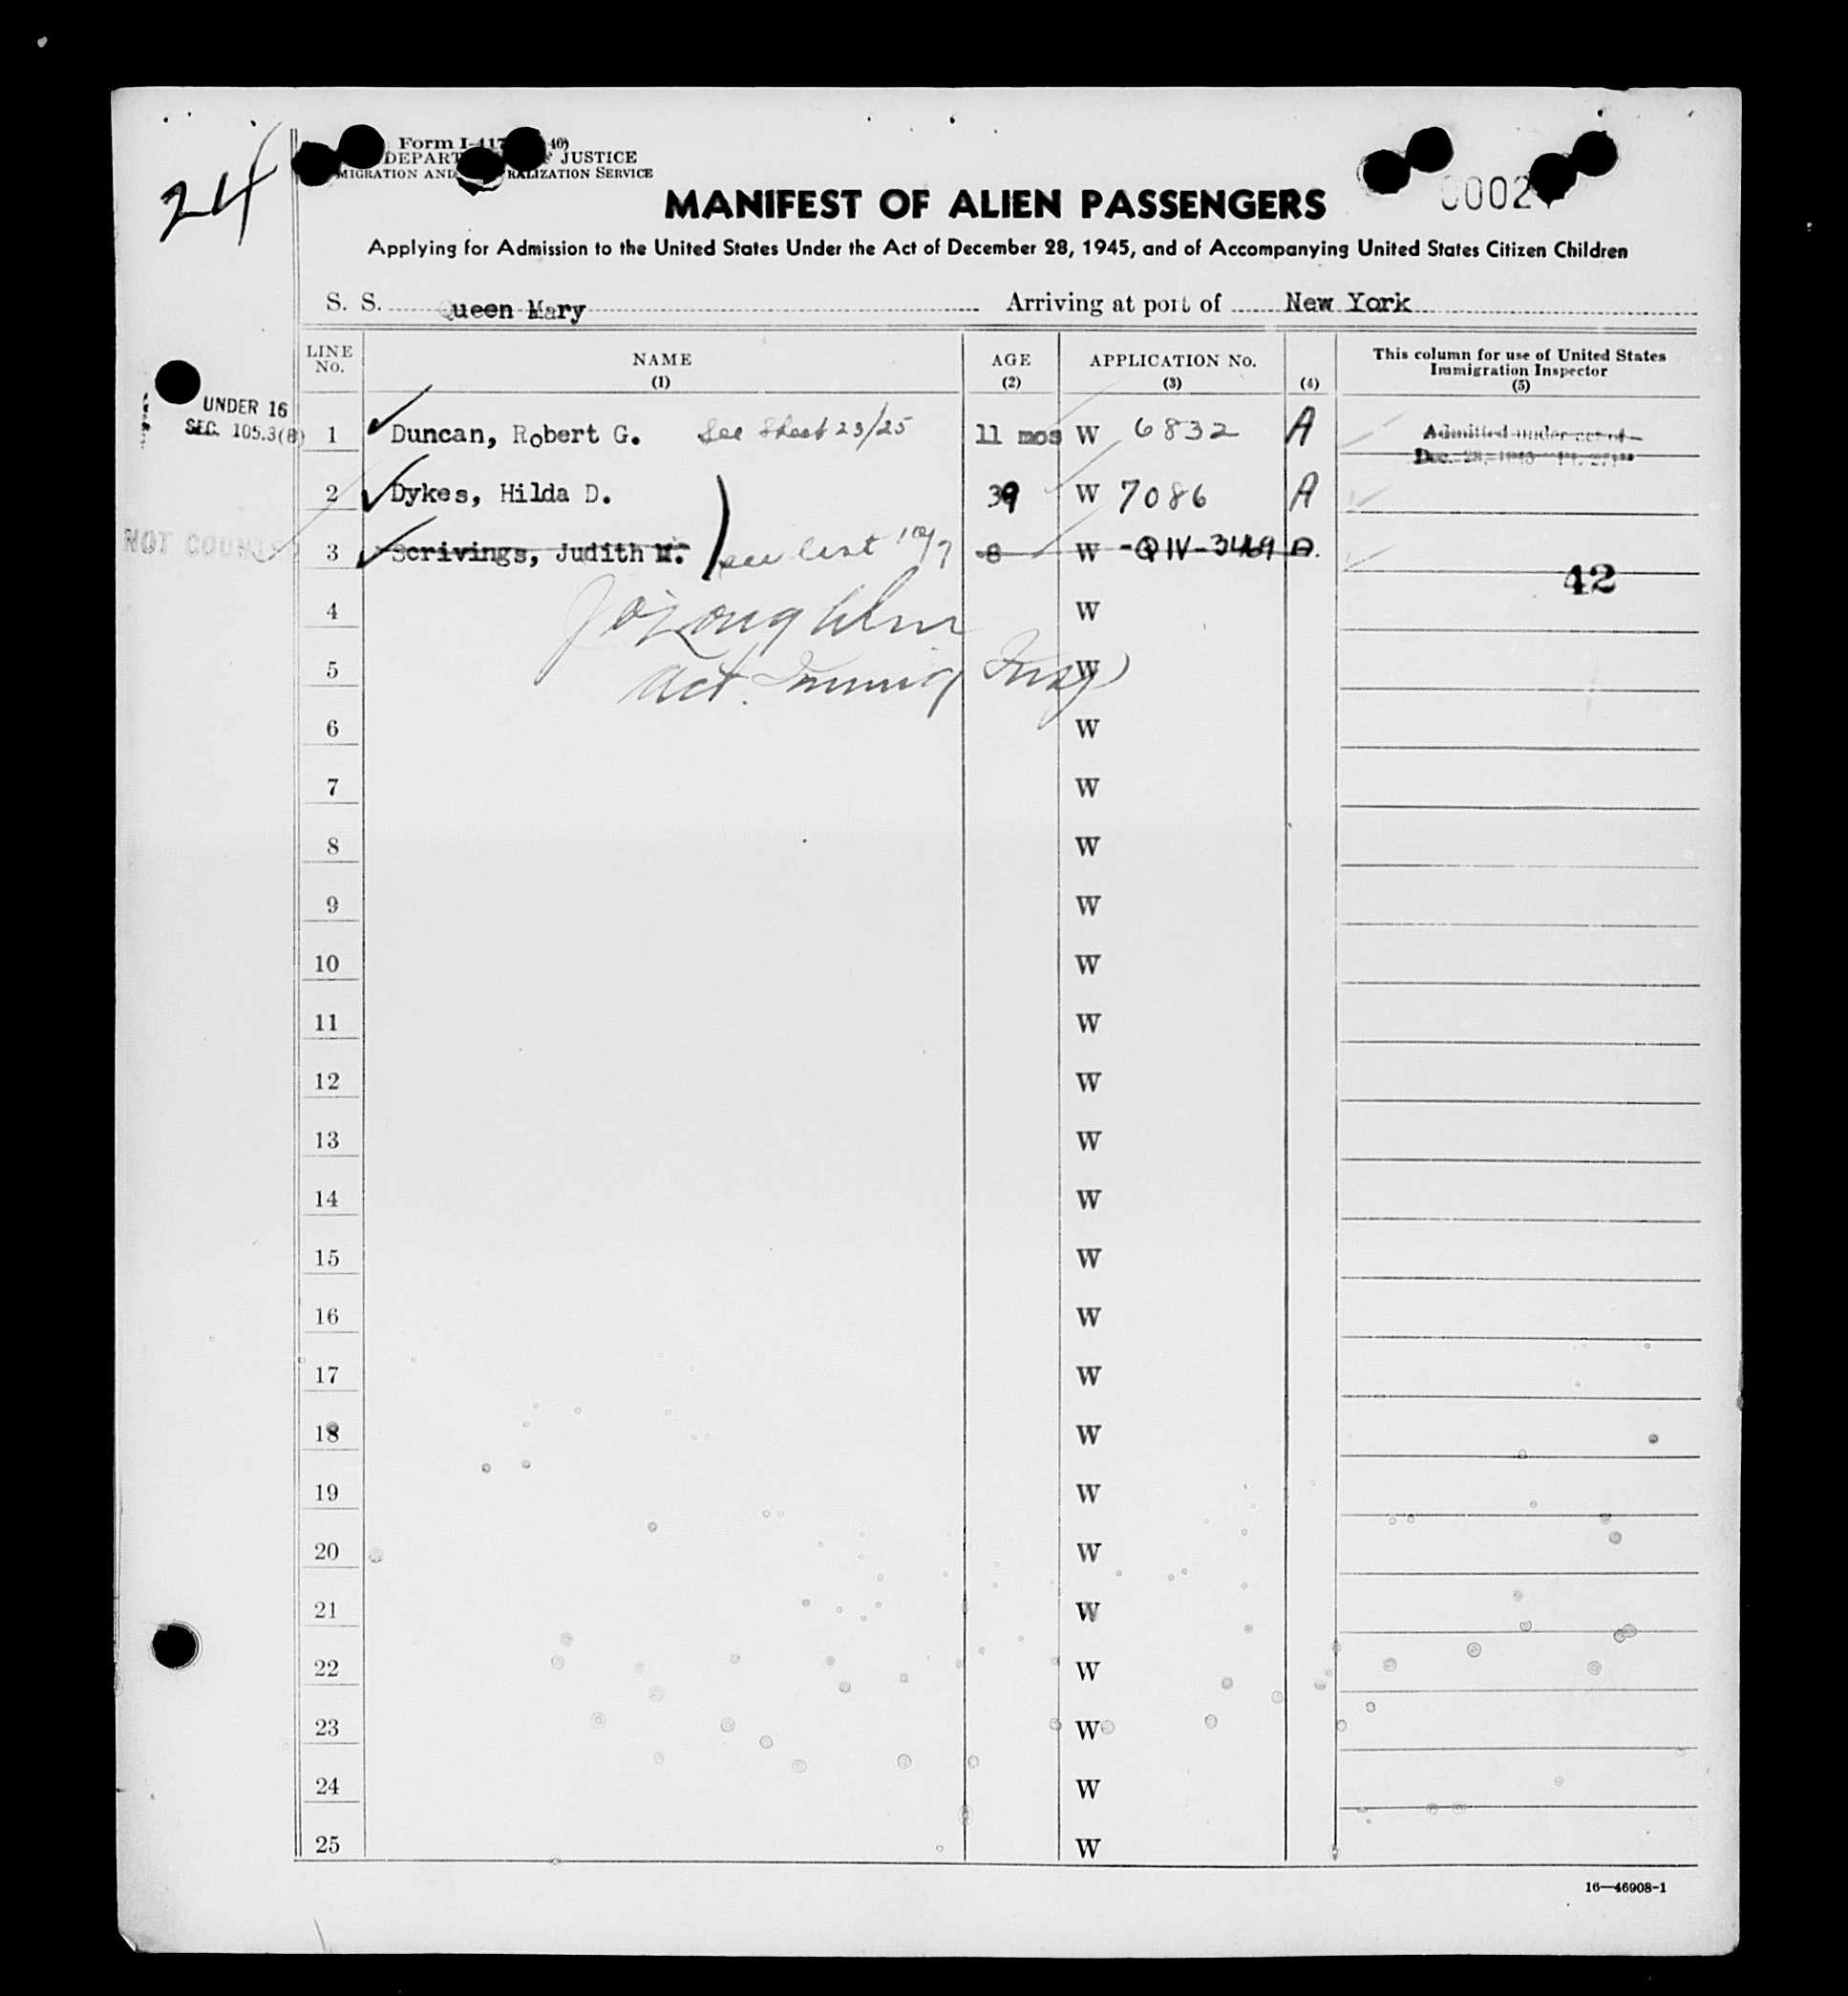 24
Form I-417 40)
DEPART JUSTICE
MIGRATION AND RALIZATION SERVICE
0002
MANIFEST OF ALIEN PASSENGERS
Applying for Admission to the United States Under the Act of December 28, 1945, and of Accompanying United States Citizen Children
S. S. Queen Mary Arriving at port of New York
LINE No. NAME (1) AGE (2) APPLICATION No. (3) (4) This column for use of United States Immigration Inspector (5)
UNDER 16
SEC. 105.3(B)
1 Duncan, Robert G. See Sheet 23/25 11 mos W 6832 A Admitted under act of
Dec. 28, 1945
2 Dykes, Hilda D. 39 W 7086 A
NOT COUNTED
3 Scrivings, Judith M. see list 8 W -QIV-3469
42
4 W
5 Act. Immig Insp W
6 W
7 W
8 W
9 W
10 W
11 W
12 W
13 W
14 W
15 W
16 W
17 W
18 W
19 W
20 W
21 W
22 W
23 W
24 W
25 W
16—46908-1